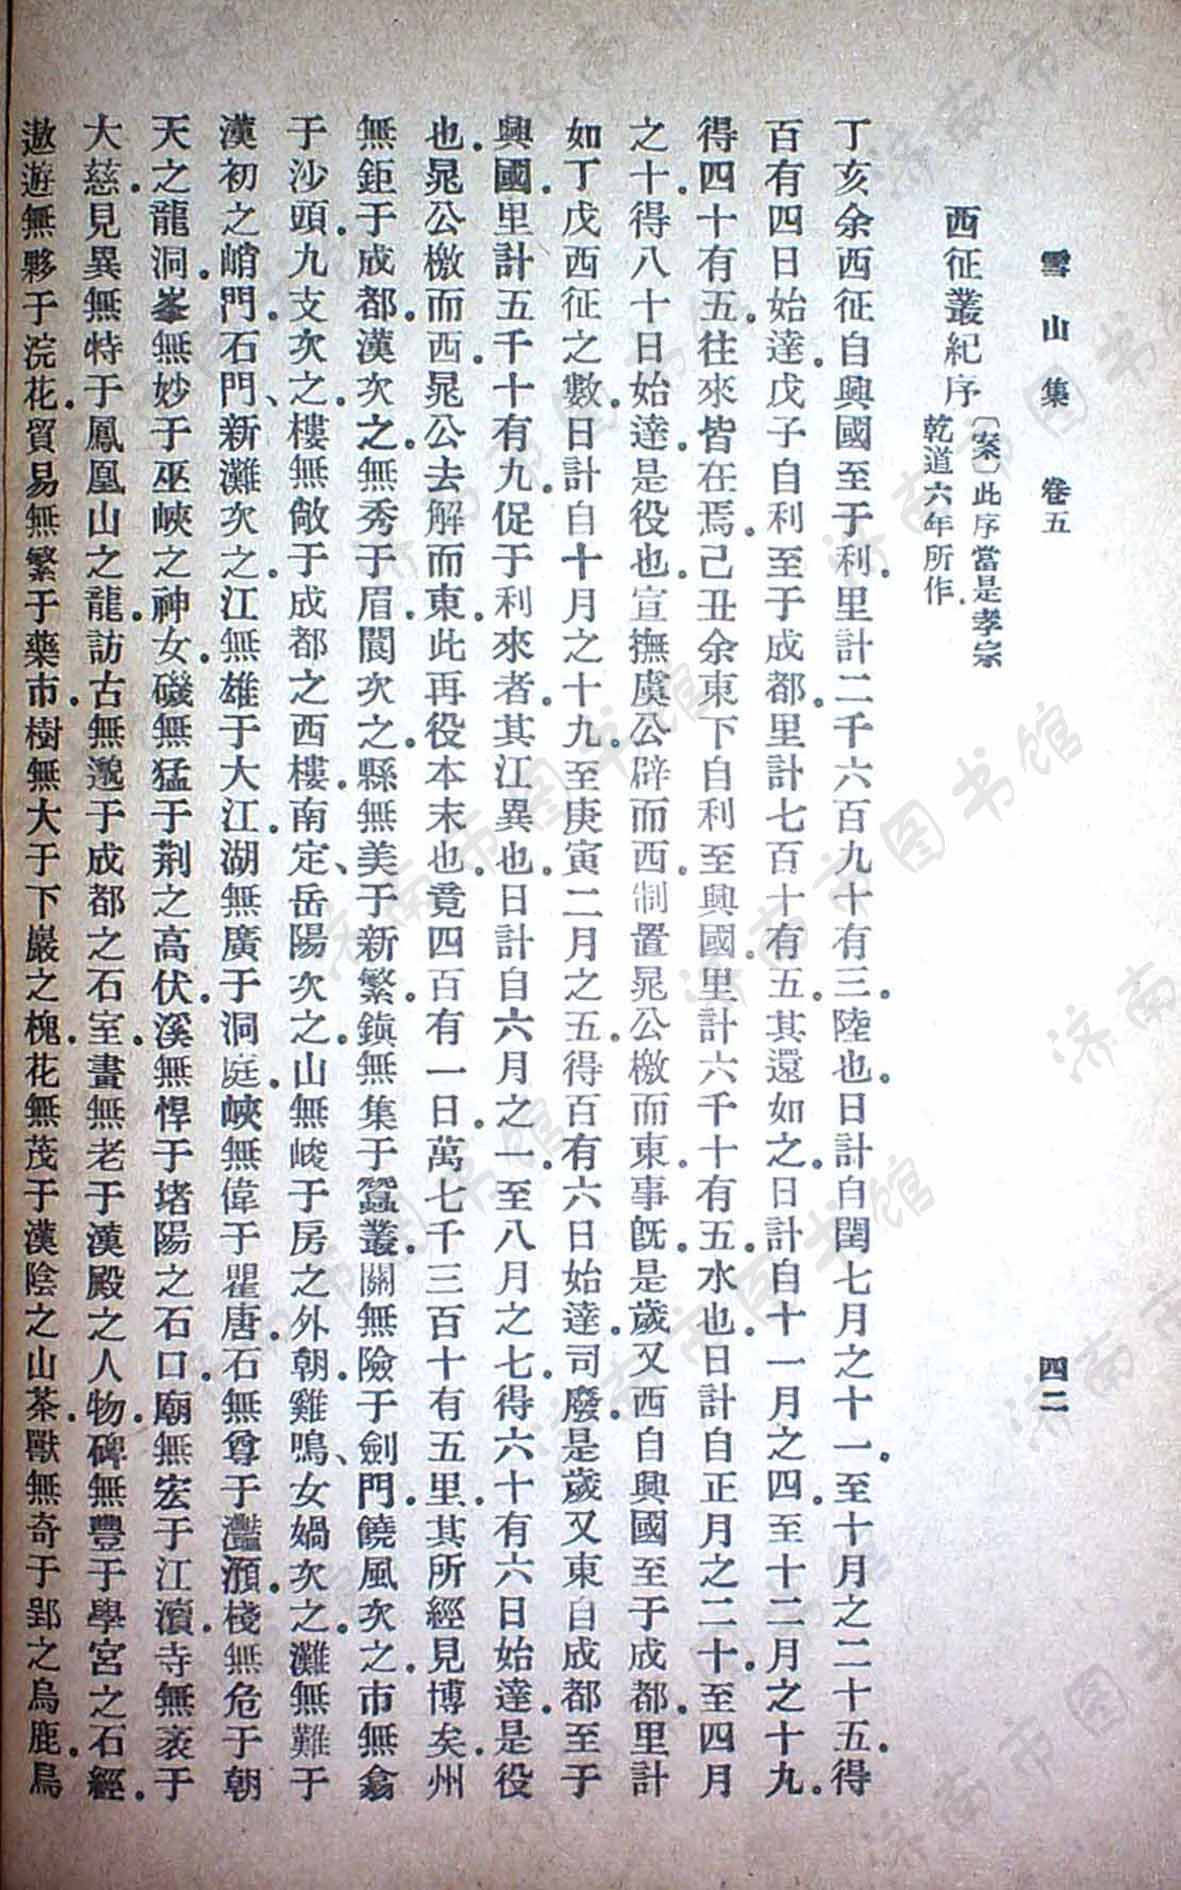 雪山集 卷五 四二
西征叢紀序〔案〕此序當是孝宗
乾道六年所作．
丁亥余西征自興國至于利．里計二千六百九十有三．陸也．日計自閏七月之十一．至十月之二十五．得
百有四日始達．戊子自利至于成都．里計七百十有五．其還如之．日計自十一月之四．至十二月之十九．
得四十有五．往來皆在焉．己丑余東下自利至興國．里計六千十有五．水也．日計自正月之二十．至四月
之十．得八十日始達．是役也．宣撫虞公辟而西．制置晁公檄而東．事旣．是歲又西自興國至于成都．里計
如丁戊西征之數．日計自十月之十九．至庚寅二月之五．得百有六日始達．司廢．是歲又東自成都至于
興國．里計五千十有九．促于利來者．其江異也．日計自六月之一．至八月之七．得六十有六日始達．是役
也．晁公檄而西．晁公去解而東．此再役本末也．竟四百有一日．萬七千三百十有五里．其所經見博矣．州
無鉅于成都．漢次之．無秀于眉．閬次之．縣無美于新繁．鎭無集于蠶叢．關無險于劍門．饒風次之．市無翕
于沙頭．九支次之．樓無敞于成都之西樓．南定、岳陽次之．山無峻于房之外朝．雞鳴、女媧次之．灘無難于
漢初之峭門．石門、新灘次之．江無雄于大江．湖無廣于洞庭．峽無偉于瞿唐．石無尊于灩澦．棧無危于朝
天之龍洞．峯無妙于巫峽之神女．磯無猛于荆之高伏．溪無悍于堵陽之石口．廟無宏于江瀆．寺無袤于
大慈．見異無特于鳳凰山之龍．訪古無邈于成都之石室．畫無老于漢殿之人物．碑無豐于學宮之石經．
遨遊無夥于浣花．貿易無繁于藥市．樹無大于下巖之槐．花無茂于漢陰之山茶．獸無奇于郢之烏鹿．鳥